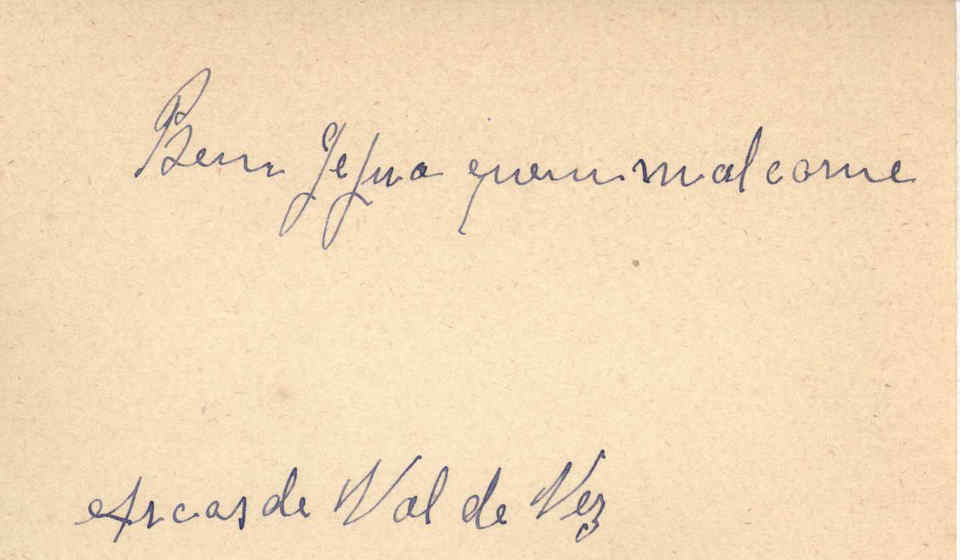 Bem Jejua quem mal come
Arcos de Val de Vez